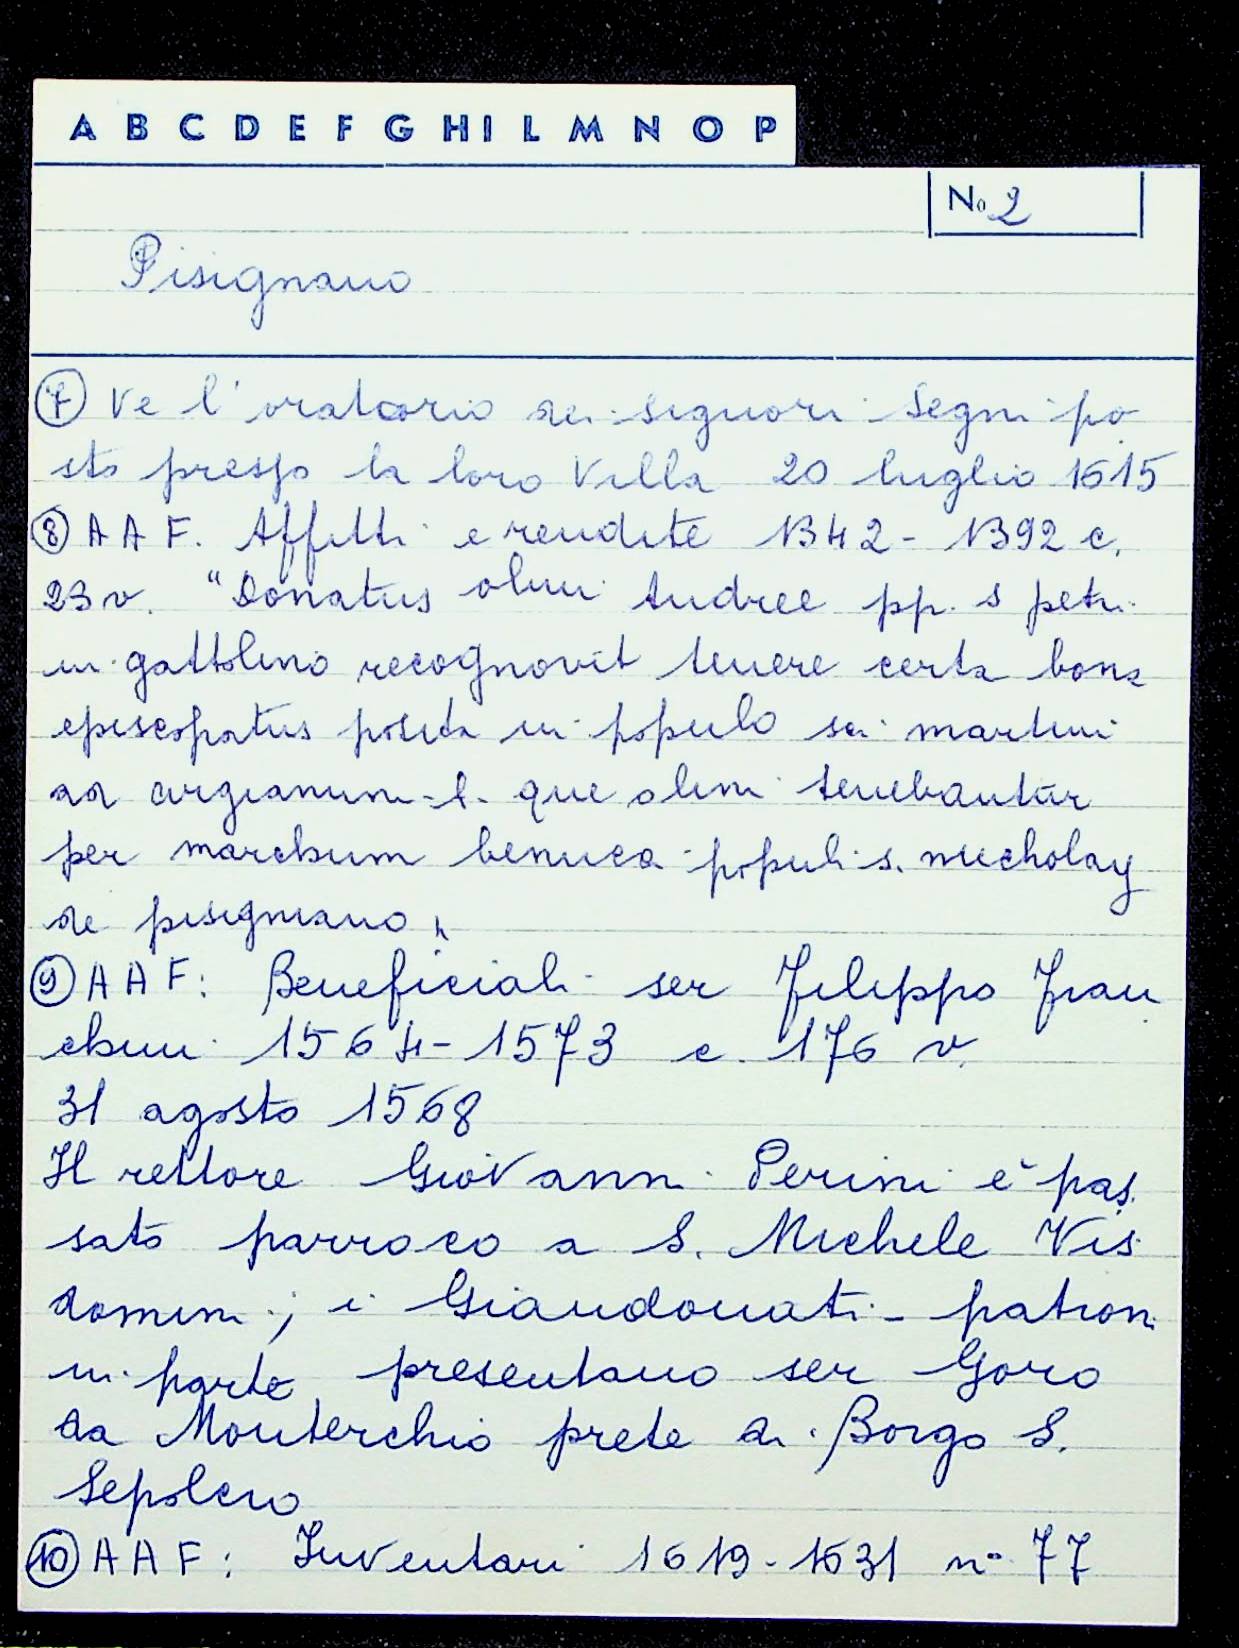 A B C D E F G H I L M N O P
No 2
Pisignano
7 Ve l'oratorio dei signori Segni po
sto presso la loro Villa 20 luglio 1615
8 A A F. Affitti e rendite 1342 - 1392 c.
23 v. "Donatus olim Andree pp. s petri
in gattolino recognovit tenere certa bona
episcopatus posita in populo sci martini
ad argianum - l - que olim tenebantur
per marchum benuca populi s. nicholay
de pisigniano "
9 A A F: Beneficiali ser Filippo Fran
chini 1564 - 1573 c. 176 v.
31 agosto 1568
Il rettore Giovanni Perini è pas
sato parroco a S. Michele Vis
domini; i Giandonati - patroni
in parte presentano ser Goro
da Monterchio prete di Borgo S.
Sepolcro
10 A A F: Inventari 1619 - 1631 n° 77